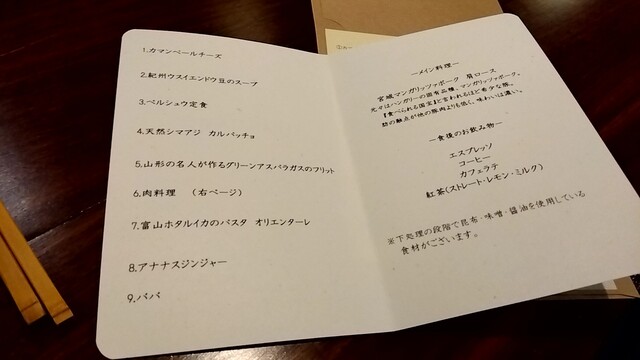 1.カマンベールチーズ
2.紀州ウスイエンドウ豆のスープ
3.ペルシュウ定食
4.天然シマアジ カルパッチョ
5.山形の名人が作るグリーンアスパラガスのフリット
6.肉料理 （右ページ）
7.富山ホタルイカのパスタ オリエンターレ
8.アナナスジンジャー
9.ババ
ーメイン料理ー
宮城マンガリッツァポーク 肩ロース
元々はハンガリーの固有品種、マンガリッツァポーク。
『食べられる国宝』と言われるほど希少な豚。
肪の融点が他の豚肉よりも低く、味わいは濃い。
ー食後のお飲み物ー
エスプレッソ
コーヒー
カフェラテ
紅茶(ストレート・レモン・ミルク)
※下処理の段階で昆布・味噌・醤油を使用している
食材がございます。